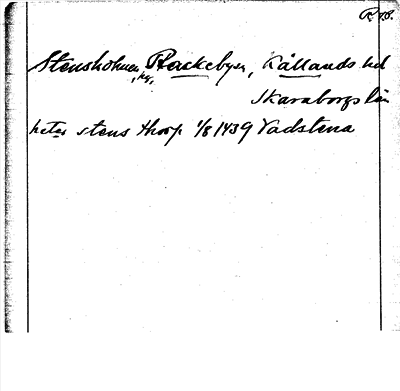 R v.S.
Stensholmen, kg, Rackeby sn, Kållands hd
Skaraborgs län
heter stens thorp 1/8 1439 Vadstena